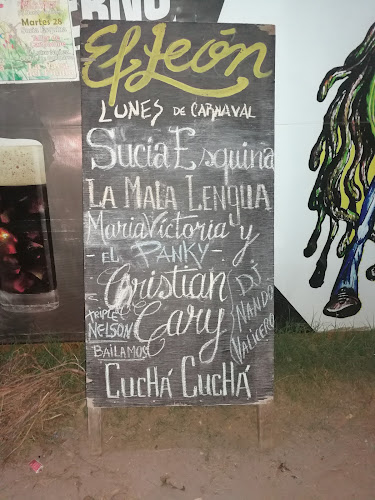 Martes 28
El León
LUNES DE CARNAVAL
Sucia Esquina
LA MALA LENGUA
María Victoria y
- EL PANKY -
Cristian
Cary
TRIPLE
NELSON
BAILAMOS
DJ
NANDO
VALICERO
CUCHÁ CUCHÁ